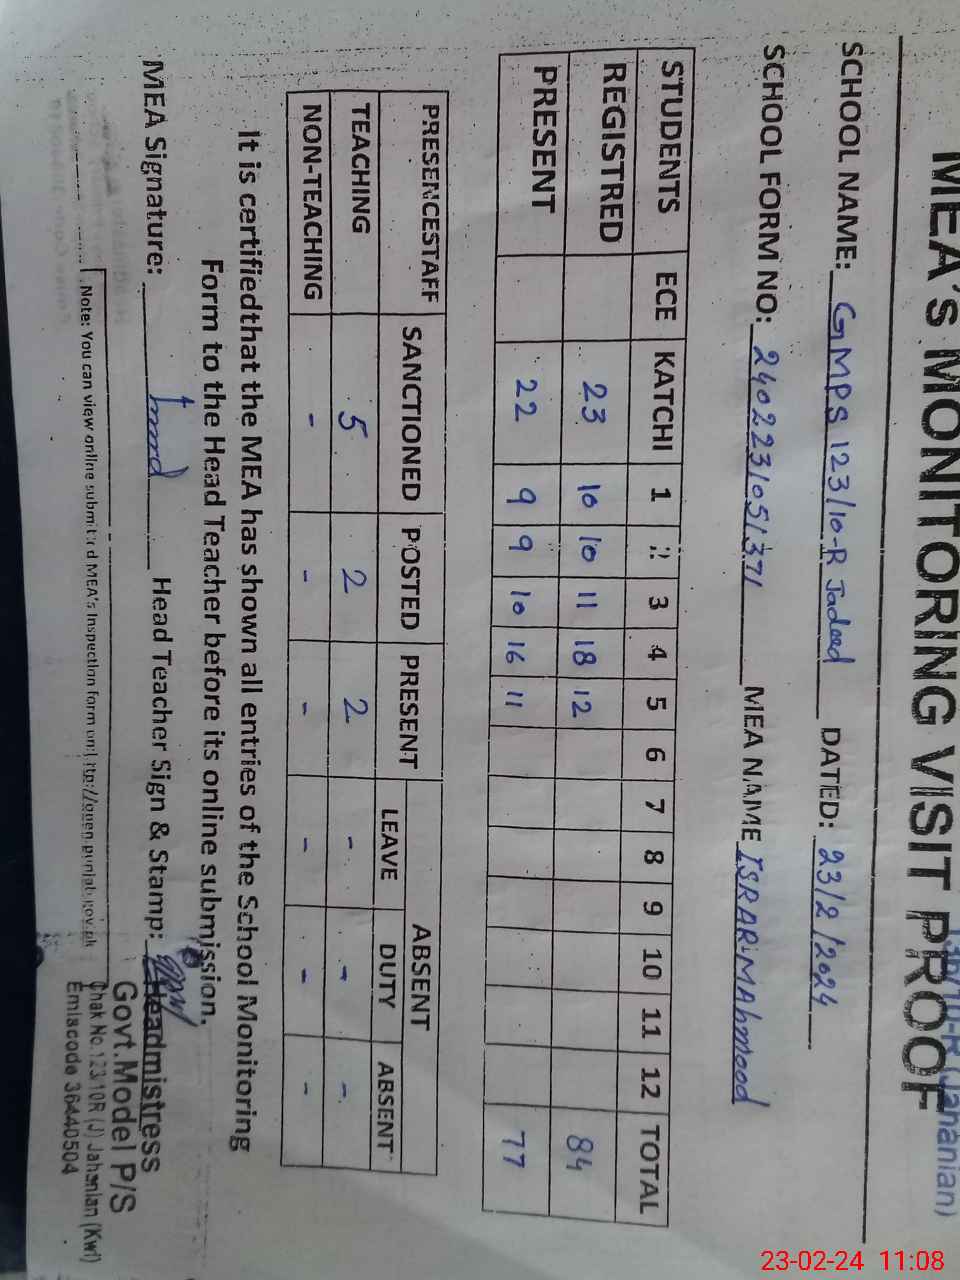 130/10-R (Jahanian)
MEA's MONITORING VISIT PROOF
SCHOOL NAME: GMPS 123/10-R Jadeed DATED: 23/2/2024
SCHOOL FORM NO: 2402231051371 MEA NAME ISRAR MAhmood
STUDENTS ECE KATCHI 1 2 3 4 5 6 7 8 9 10 11 12 TOTAL
REGISTRED 23 10 10 11 18 12 84
PRESENT 22 9 9 10 16 11 77
PRESENCESTAFF SANCTIONED POSTED PRESENT ABSENT
LEAVE DUTY ABSENT
TEACHING 5 2 2 - - -
NON-TEACHING - - - - - -
It is certifiedthat the MEA has shown all entries of the School Monitoring
Form to the Head Teacher before its online submission.
MEA Signature: Head Teacher Sign & Stamp:
Headmistress
Govt.Model P/S
Chak No.123/10R (J) Jahanian (Kwl)
Emiscode 36440504
Note: You can view online submitted MEA's Inspection form on:
23-02-24 11:08